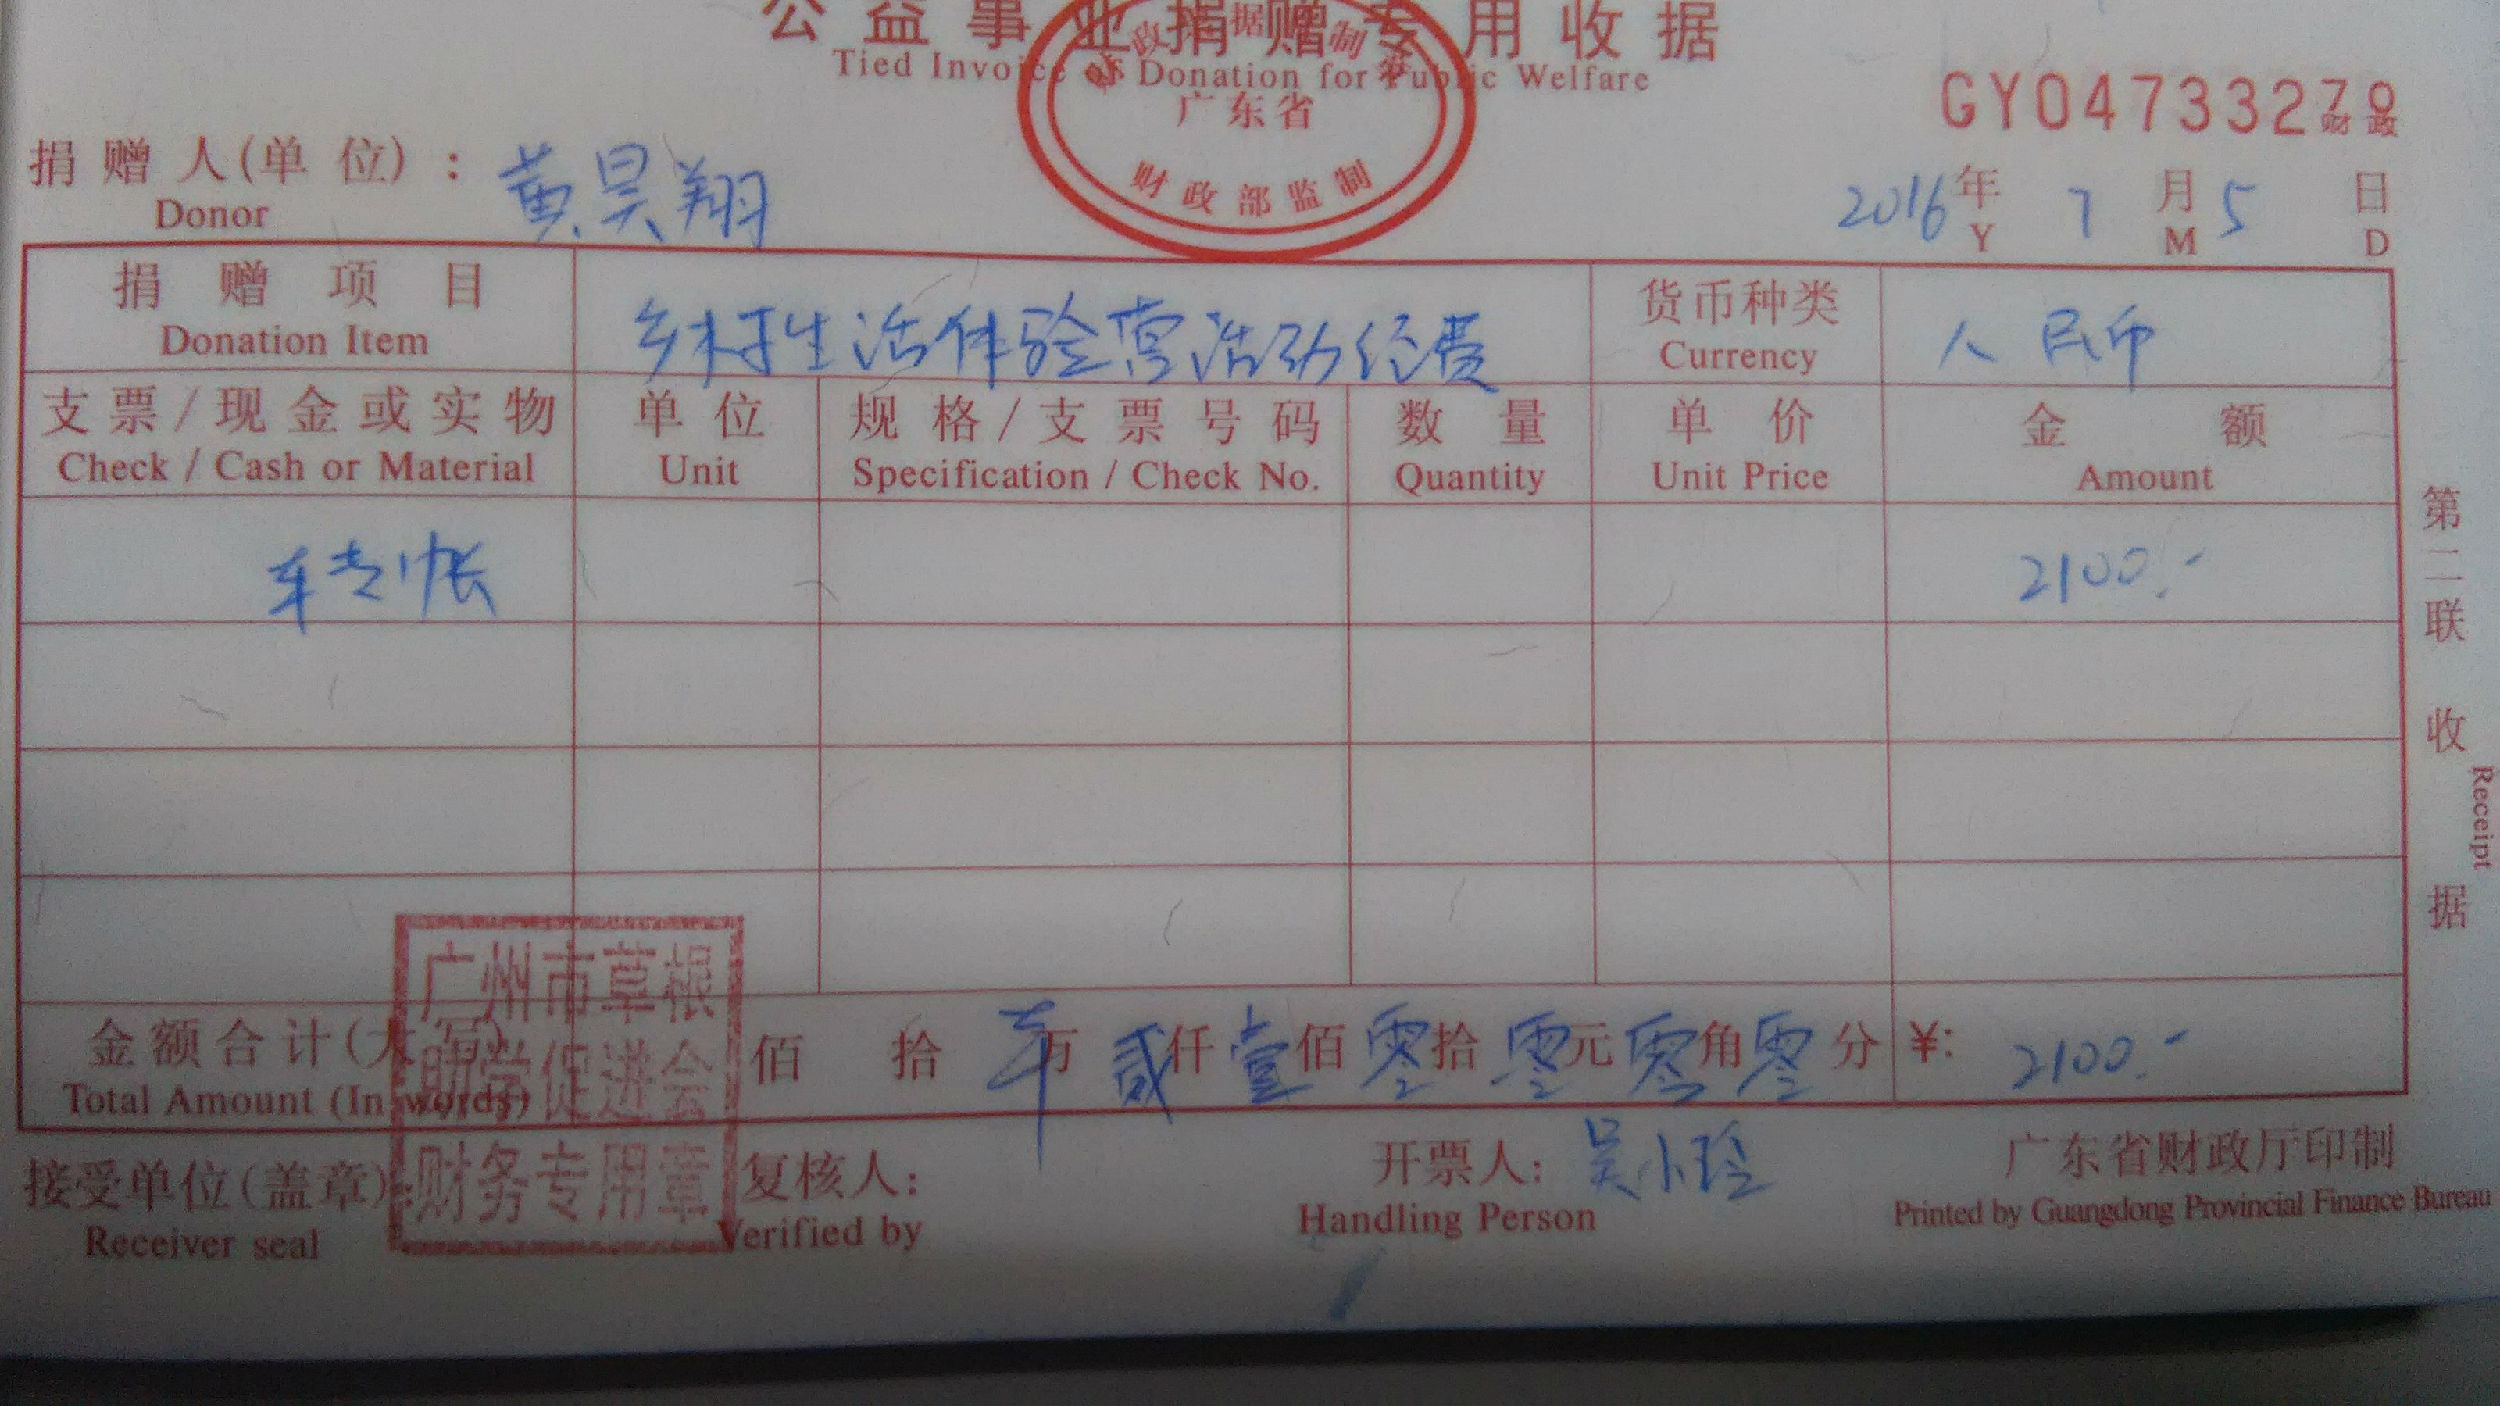 公益事业捐赠专用收据
Tied Invoice of Donation for Public Welfare
广东省
财政部监制
GY04733270
财政
捐赠人(单位):黄昊翔
Donor
2016年7月5日
Y M D
捐赠项目 乡村生活体验营活动经费 货币种类 人民币
Donation Item Currency
支票/现金或实物 单位 规格/支票号码 数量 单价 金额
Check / Cash or Material Unit Specification / Check No. Quantity Unit Price Amount
转帐 2100.-
第二联 收据
Receipt
金额合计(大写) 佰 拾 万 贰仟壹佰零拾零元零角零分 ¥: 2100.-
Total Amount (In words)
广州市草根
助学促进会
财务专用章
接受单位(盖章): 复核人: 开票人:吴小玲 广东省财政厅印制
Receiver seal Verified by Handling Person Printed by Guangdong Provincial Finance Bureau